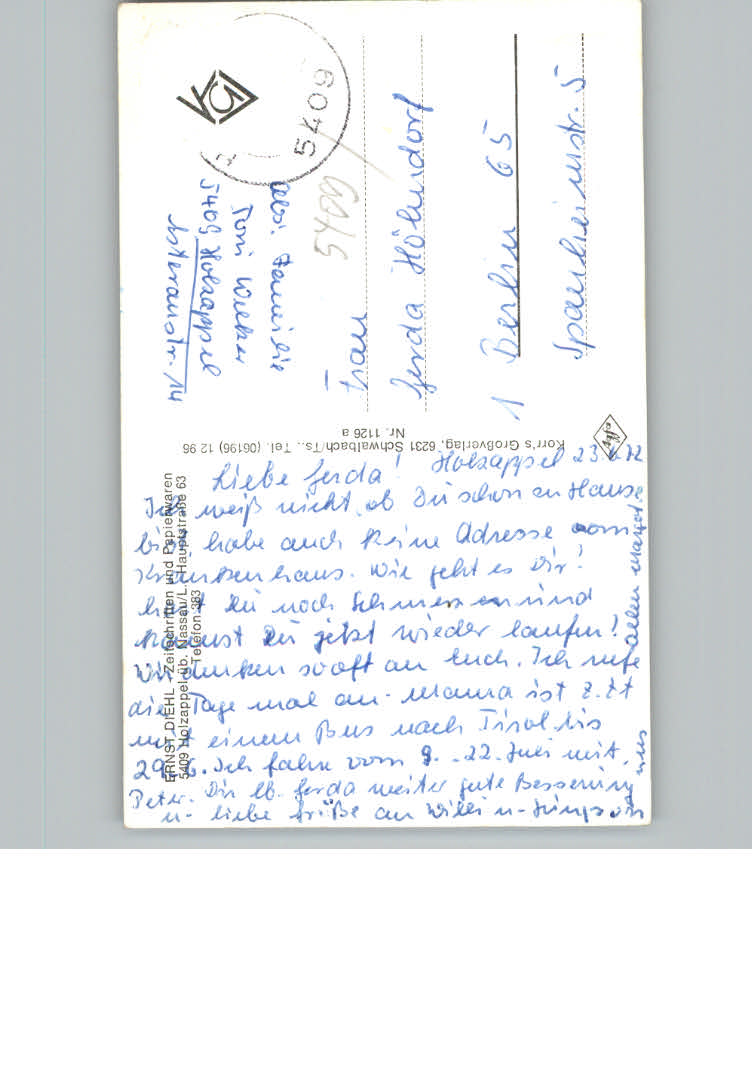 5409
Abs. Familie
Toni Weber
5409 Holzappel
Esteraustr. 14
5409
Frau
Gerda Höhndorf
1 Berlin 65
Spanheimstr. 5
Korr's Großverlag, 6231 Schwalbach/Ts., Tel. (06196) 12 96
Nr. 1126 a
Agfa
ERNST DIEHL - Zeitschriften und Papierwaren
5409 Holzappel üb. Nassau/L., Hauptstraße 63
Telefon 383
Holzappel 23.6.72
Liebe Gerda!
Ich weiß nicht, ob Du schon zu Hause
bist, habe auch keine Adresse vom
Krankenhaus. Wie geht es Dir?
hast Du noch Schmerzen und
kannst Du jetzt wieder laufen!
Wir denken so oft an Euch. Ich rufe
die Tage mal an. Mama ist z. Zt
mit einem Bus nach Tirol bis
29.6. Ich fahre vom 9. - 22. Juli mit
Peter. Dir lb. Gerda weiter gute Besserung
u. liebe Grüße an Willi u. Jungs von
uns
allen